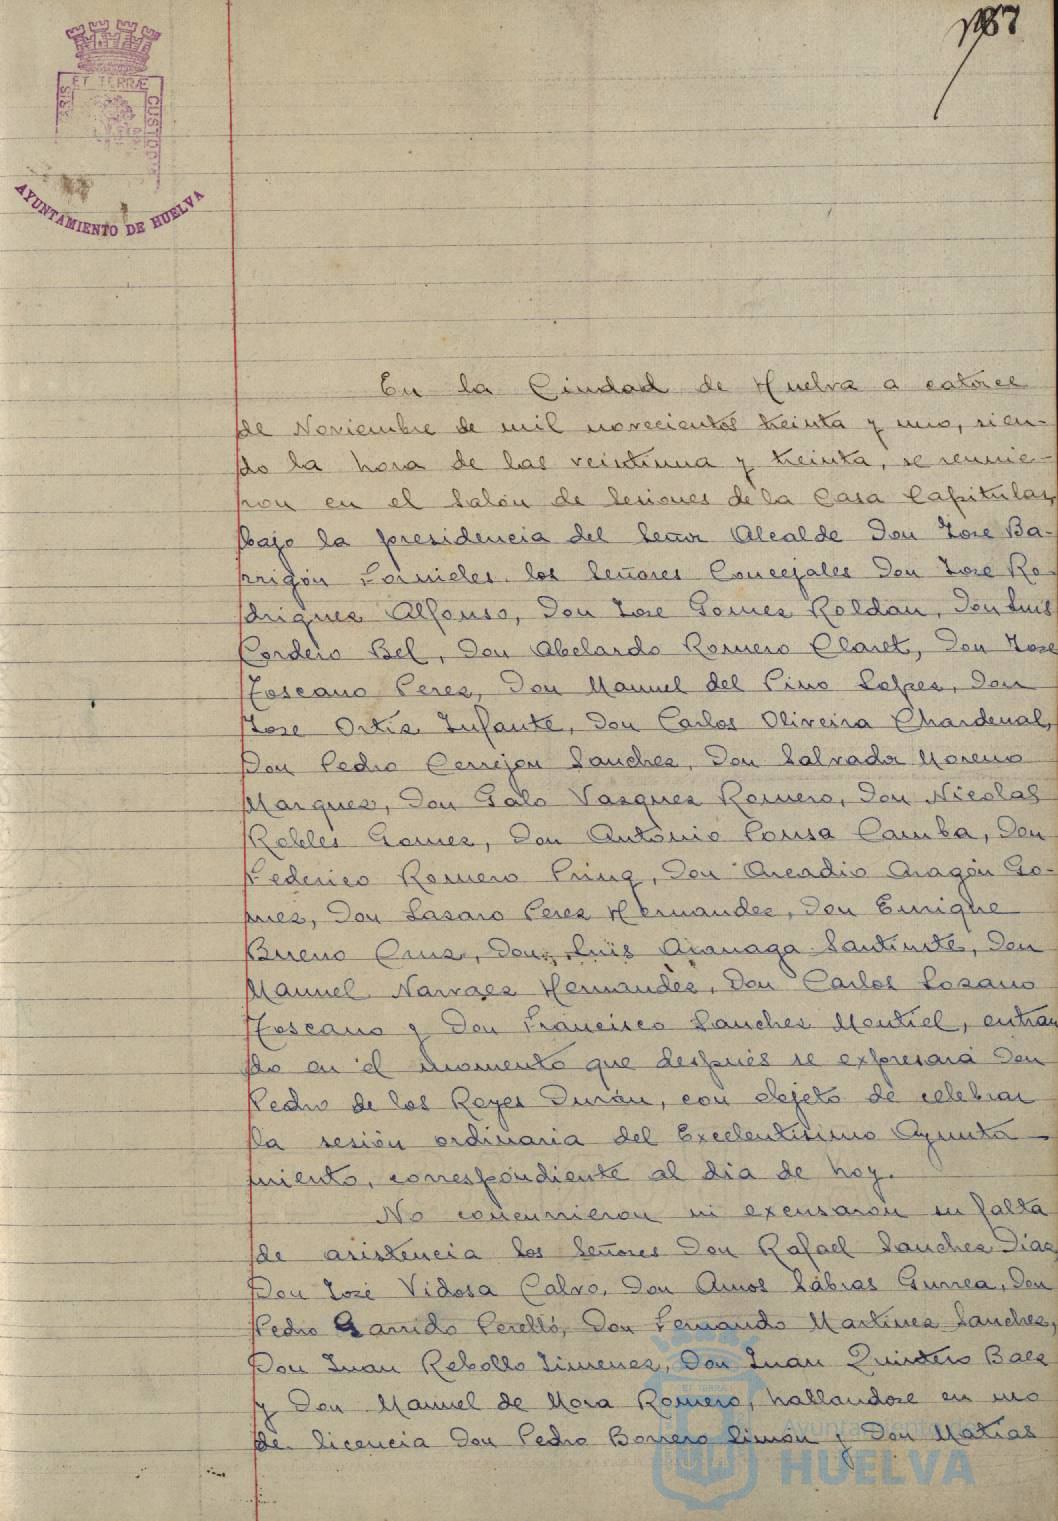 187
ET TERRÆ
CUSTOD
AYUNTAMIENTO DE HUELVA
En la Ciudad de Huelva a catorce
de Noviembre de mil novecientos treinta y uno, sien-
do la hora de las veintiuna y treinta, se reunie-
ron en el Salón de Sesiones de la Casa Capitular,
bajo la presidencia del Señor Alcalde Don Jose Ba-
rrigón Fornieles los Señores Concejales Don Jose Ro-
driguez Alfonso, Don Jose Gomez Roldan, Don Luis
Cordero Bel, Don Abelardo Romero Claret, Don Jose
Toscano Perez, Don Manuel del Pino Lopez, Don
Jose Ortiz Infante, Don Carlos Oliveira Chardenal,
Don Pedro Cerrejon Sanchez, Don Salvador Moreno
Marquez, Don Galo Vazquez Romero, Don Nicolas
Robles Gomez, Don Antonio Pousa Camba, Don
Federico Romero Prinq, Don Arcadio Aragón Go-
mez, Don Lazaro Perez Hernandez, Don Enrique
Bueno Cruz, Don Luis Aranaga Santiuste, Don
Manuel Narvaez Hernandez, Don Carlos Lozano
Toscano y Don Francisco Sanchez Montiel, entran
do en el momento que después se expresará Don
Pedro de los Reyes Durán, con objeto de celebrar
la sesión ordinaria del Excelentisimo Ayunta-
miento, correspondiente al dia de hoy.
No concurrieron ni excusaron su falta
de asistencia los Señores Don Rafael Sanchez Díaz,
Don José Vidosa Calvo, Don Amos Sábras Gurrea, Don
Pedro Garrido Perelló, Don Fernando Martinez Sanchez,
Don Juan Rebollo Jimenez, Don Juan Quintero Baez
y Don Manuel de Mora Romero, hallandose en uso
de licencia Don Pedro Borrero Limón y Don Matias
Ayuntamiento de
HUELVA